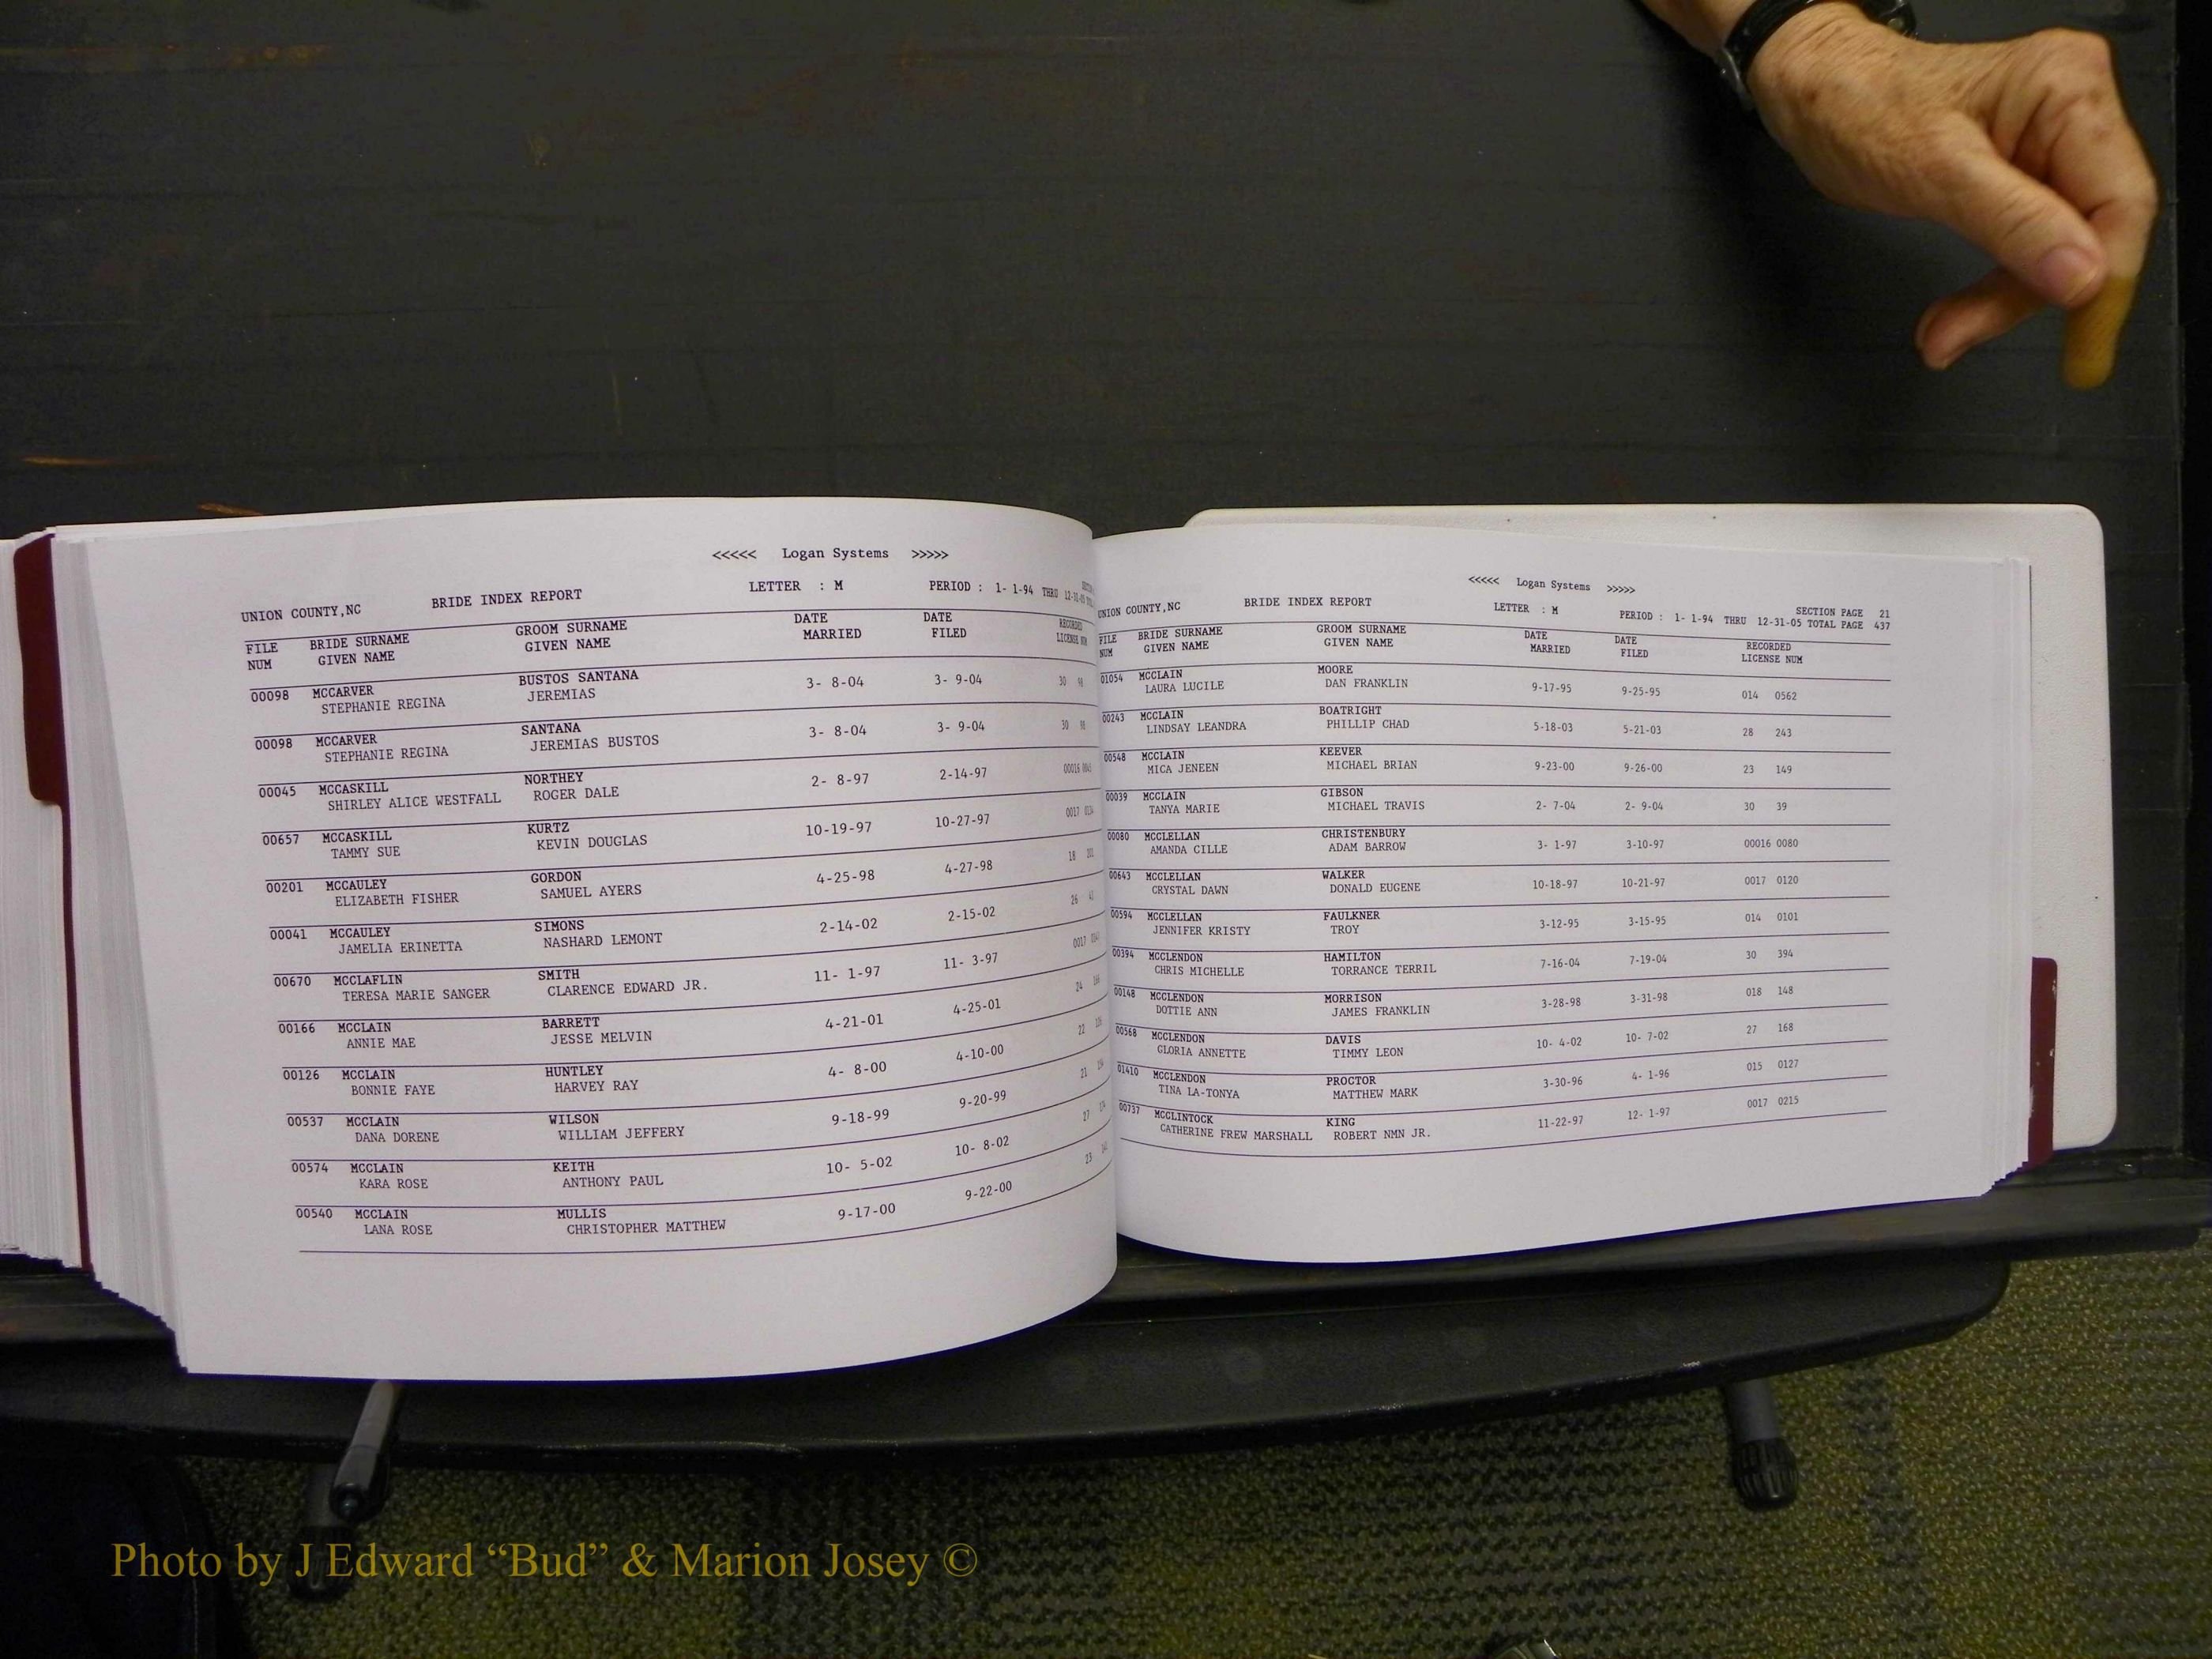 <<<<< Logan Systems >>>>>
UNION COUNTY,NC BRIDE INDEX REPORT LETTER : M PERIOD : 1- 1-94 THRU
FILE BRIDE SURNAME GROOM SURNAME DATE DATE RECORDED
NUM GIVEN NAME GIVEN NAME MARRIED FILED LICENSE NUM
00098 MCCARVER BUSTOS SANTANA 3- 8-04 3- 9-04 30 98
STEPHANIE REGINA JEREMIAS
00098 MCCARVER SANTANA 3- 8-04 3- 9-04 30 98
STEPHANIE REGINA JEREMIAS BUSTOS
00045 MCCASKILL NORTHEY 2- 8-97 2-14-97 00016 0045
SHIRLEY ALICE WESTFALL ROGER DALE
00657 MCCASKILL KURTZ 10-19-97 10-27-97 0017
TAMMY SUE KEVIN DOUGLAS
00201 MCCAULEY GORDON 4-25-98 4-27-98 18
ELIZABETH FISHER SAMUEL AYERS
00041 MCCAULEY SIMONS 2-14-02 2-15-02 26
JAMELIA ERINETTA NASHARD LEMONT
00670 MCCLAFLIN SMITH 11- 1-97 11- 3-97 0017
TERESA MARIE SANGER CLARENCE EDWARD JR.
00166 MCCLAIN BARRETT 4-21-01 4-25-01 24
ANNIE MAE JESSE MELVIN
00126 MCCLAIN HUNTLEY 4- 8-00 4-10-00 22
BONNIE FAYE HARVEY RAY
00537 MCCLAIN WILSON 9-18-99 9-20-99 21
DANA DORENE WILLIAM JEFFERY
00574 MCCLAIN KEITH 10- 5-02 10- 8-02 27
KARA ROSE ANTHONY PAUL
00540 MCCLAIN MULLIS 9-17-00 9-22-00 23
LANA ROSE CHRISTOPHER MATTHEW
<<<<< Logan Systems >>>>>
UNION COUNTY,NC BRIDE INDEX REPORT LETTER : M SECTION PAGE 21
PERIOD : 1- 1-94 THRU 12-31-05 TOTAL PAGE 437
FILE BRIDE SURNAME GROOM SURNAME DATE DATE RECORDED
NUM GIVEN NAME GIVEN NAME MARRIED FILED LICENSE NUM
01054 MCCLAIN MOORE 9-17-95 9-25-95 014 0562
LAURA LUCILE DAN FRANKLIN
00243 MCCLAIN BOATRIGHT 5-18-03 5-21-03 28 243
LINDSAY LEANDRA PHILLIP CHAD
00548 MCCLAIN KEEVER 9-23-00 9-26-00 23 149
MICA JENEEN MICHAEL BRIAN
00039 MCCLAIN GIBSON 2- 7-04 2- 9-04 30 39
TANYA MARIE MICHAEL TRAVIS
00080 MCCLELLAN CHRISTENBURY 3- 1-97 3-10-97 00016 0080
AMANDA CILLE ADAM BARROW
00643 MCCLELLAN WALKER 10-18-97 10-21-97 0017 0120
CRYSTAL DAWN DONALD EUGENE
00594 MCCLELLAN FAULKNER 3-12-95 3-15-95 014 0101
JENNIFER KRISTY TROY
00394 MCCLENDON HAMILTON 7-16-04 7-19-04 30 394
CHRIS MICHELLE TORRANCE TERRIL
00148 MCCLENDON MORRISON 3-28-98 3-31-98 018 148
DOTTIE ANN JAMES FRANKLIN
00568 MCCLENDON DAVIS 10- 4-02 10- 7-02 27 168
GLORIA ANNETTE TIMMY LEON
01410 MCCLENDON PROCTOR 3-30-96 4- 1-96 015 0127
TINA LA-TONYA MATTHEW MARK
00737 MCCLINTOCK KING 11-22-97 12- 1-97 0017 0215
CATHERINE FREW MARSHALL ROBERT NMN JR.
Photo by J Edward “Bud” & Marion Josey ©